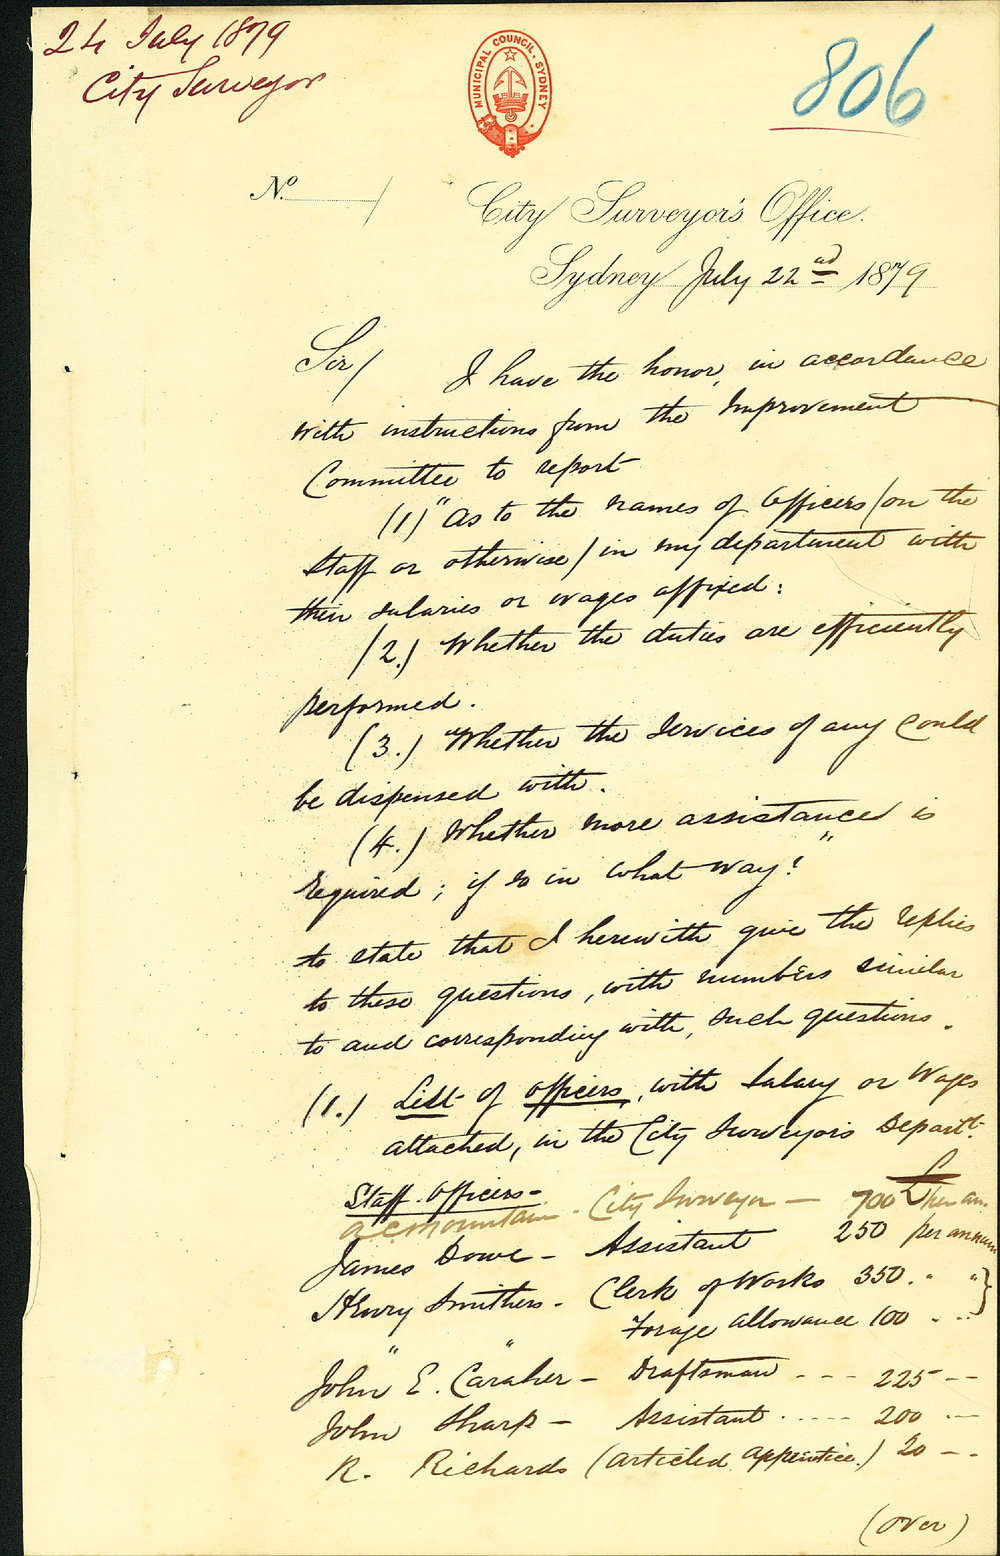 24 July 1879
City Surveyor
MUNICIPAL COUNCIL. SYDNEY
806
No. /
City Surveyor's Office.
Sydney July 22nd 1879
Sir/ I have the honor, in accordance
with instructions from the Improvement
Committee to report
(1) "As to the names of Officers (on the
Staff or otherwise) in my department with
their salaries or wages affixed:
(2.) Whether the duties are efficiently
performed.
(3.) "Whether the services of any could
be dispensed with.
(4.) Whether more assistance is
required; if so in what way?"
to state that I herewith give the replies
to these questions, with numbers similar
to and corresponding with, such questions.
(1.) List of officers, with Salary or Wages
attached, in the City Surveyor's Departt.
Staff Officers- £
A C Mountain - City Surveyor - 700 £ per an.
James Dowe - Assistant 250 per annum
Henry Smithers - Clerk of Works 350. " " }
" " Forage allowance 100 " "
John E. Caraher - Draftsman - - - 225 - -
John Sharp - Assistant - - - - 200 - -
R. Richards (articled apprentice.) 20 - -
(over)